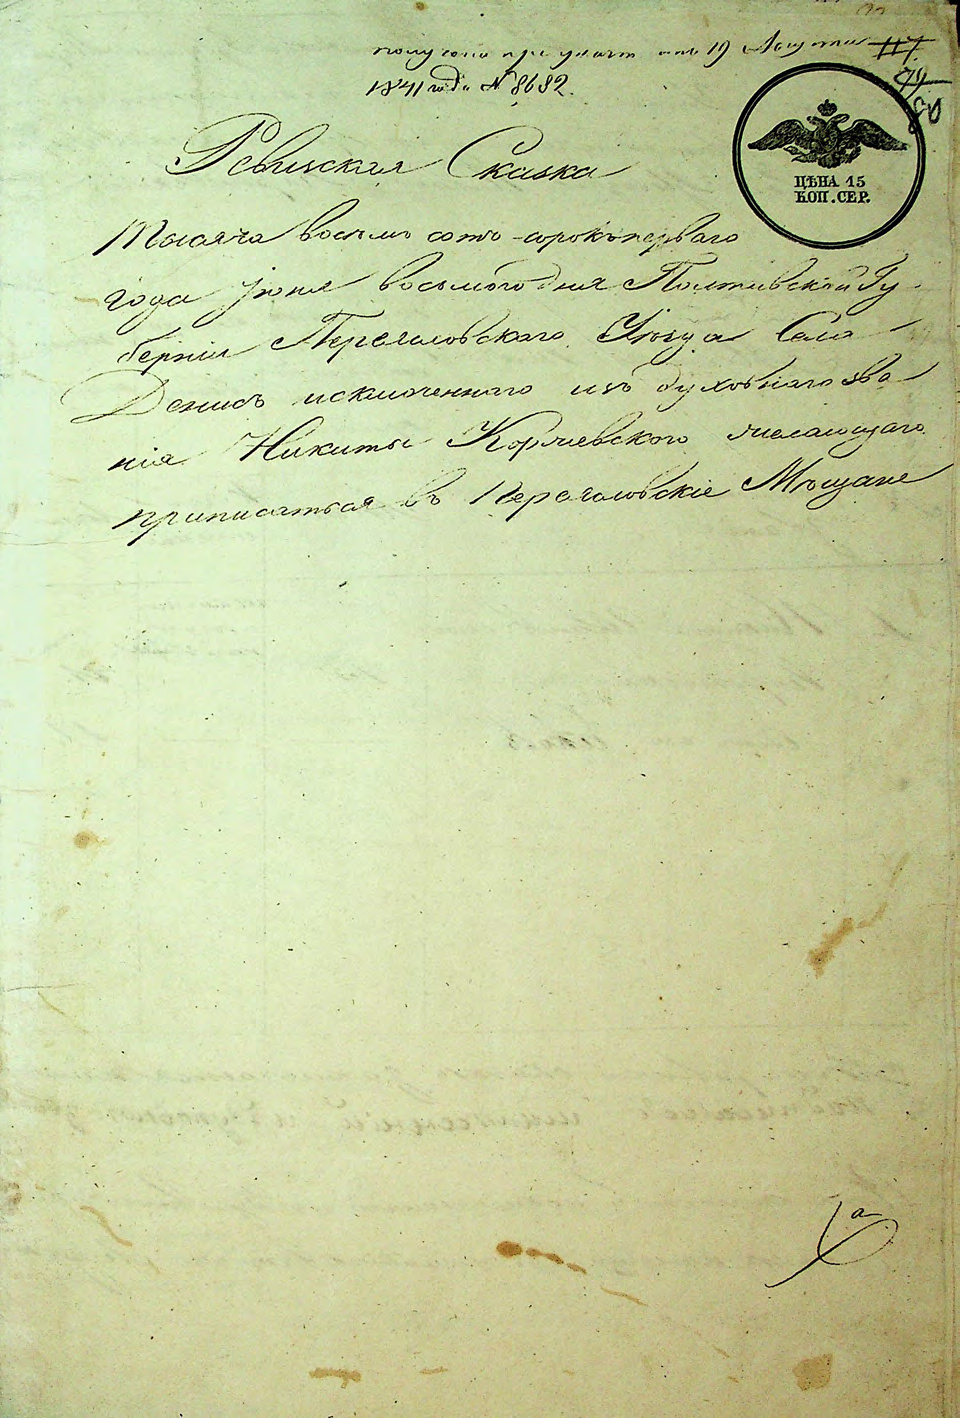 получена при указе отъ 19 Августа
1841 года № 8682.
117
79
80
ЦѢНА 15
КОП. СЕР.
Ревизская Сказка
Тысяча восемь сотъ сорокъ перваго
года Іюня восьмого дня Полтавской Гу-
берніи Переяславского Уѣзда Села
Денисъ исключенного изъ духовнаго зва
нія Никиты Корчевского желающаго
приписаться въ Переяславскіе Мѣщане